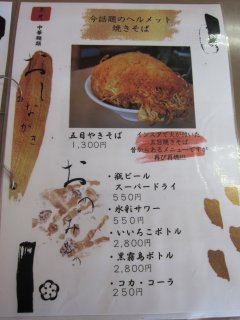 中華麺類
おしながき
今話題のヘルメット
焼きそば
五目やきそば
1,300円
インスタで火が付いた
五目焼きそば
昔からあるメニューですが
再び再燃!!!
おのみもの
・瓶ビール
スーパードライ
550円
・氷彩サワー
550円
・いいちこボトル
2,800円
・黒霧島ボトル
2,800円
・コカ・コーラ
250円